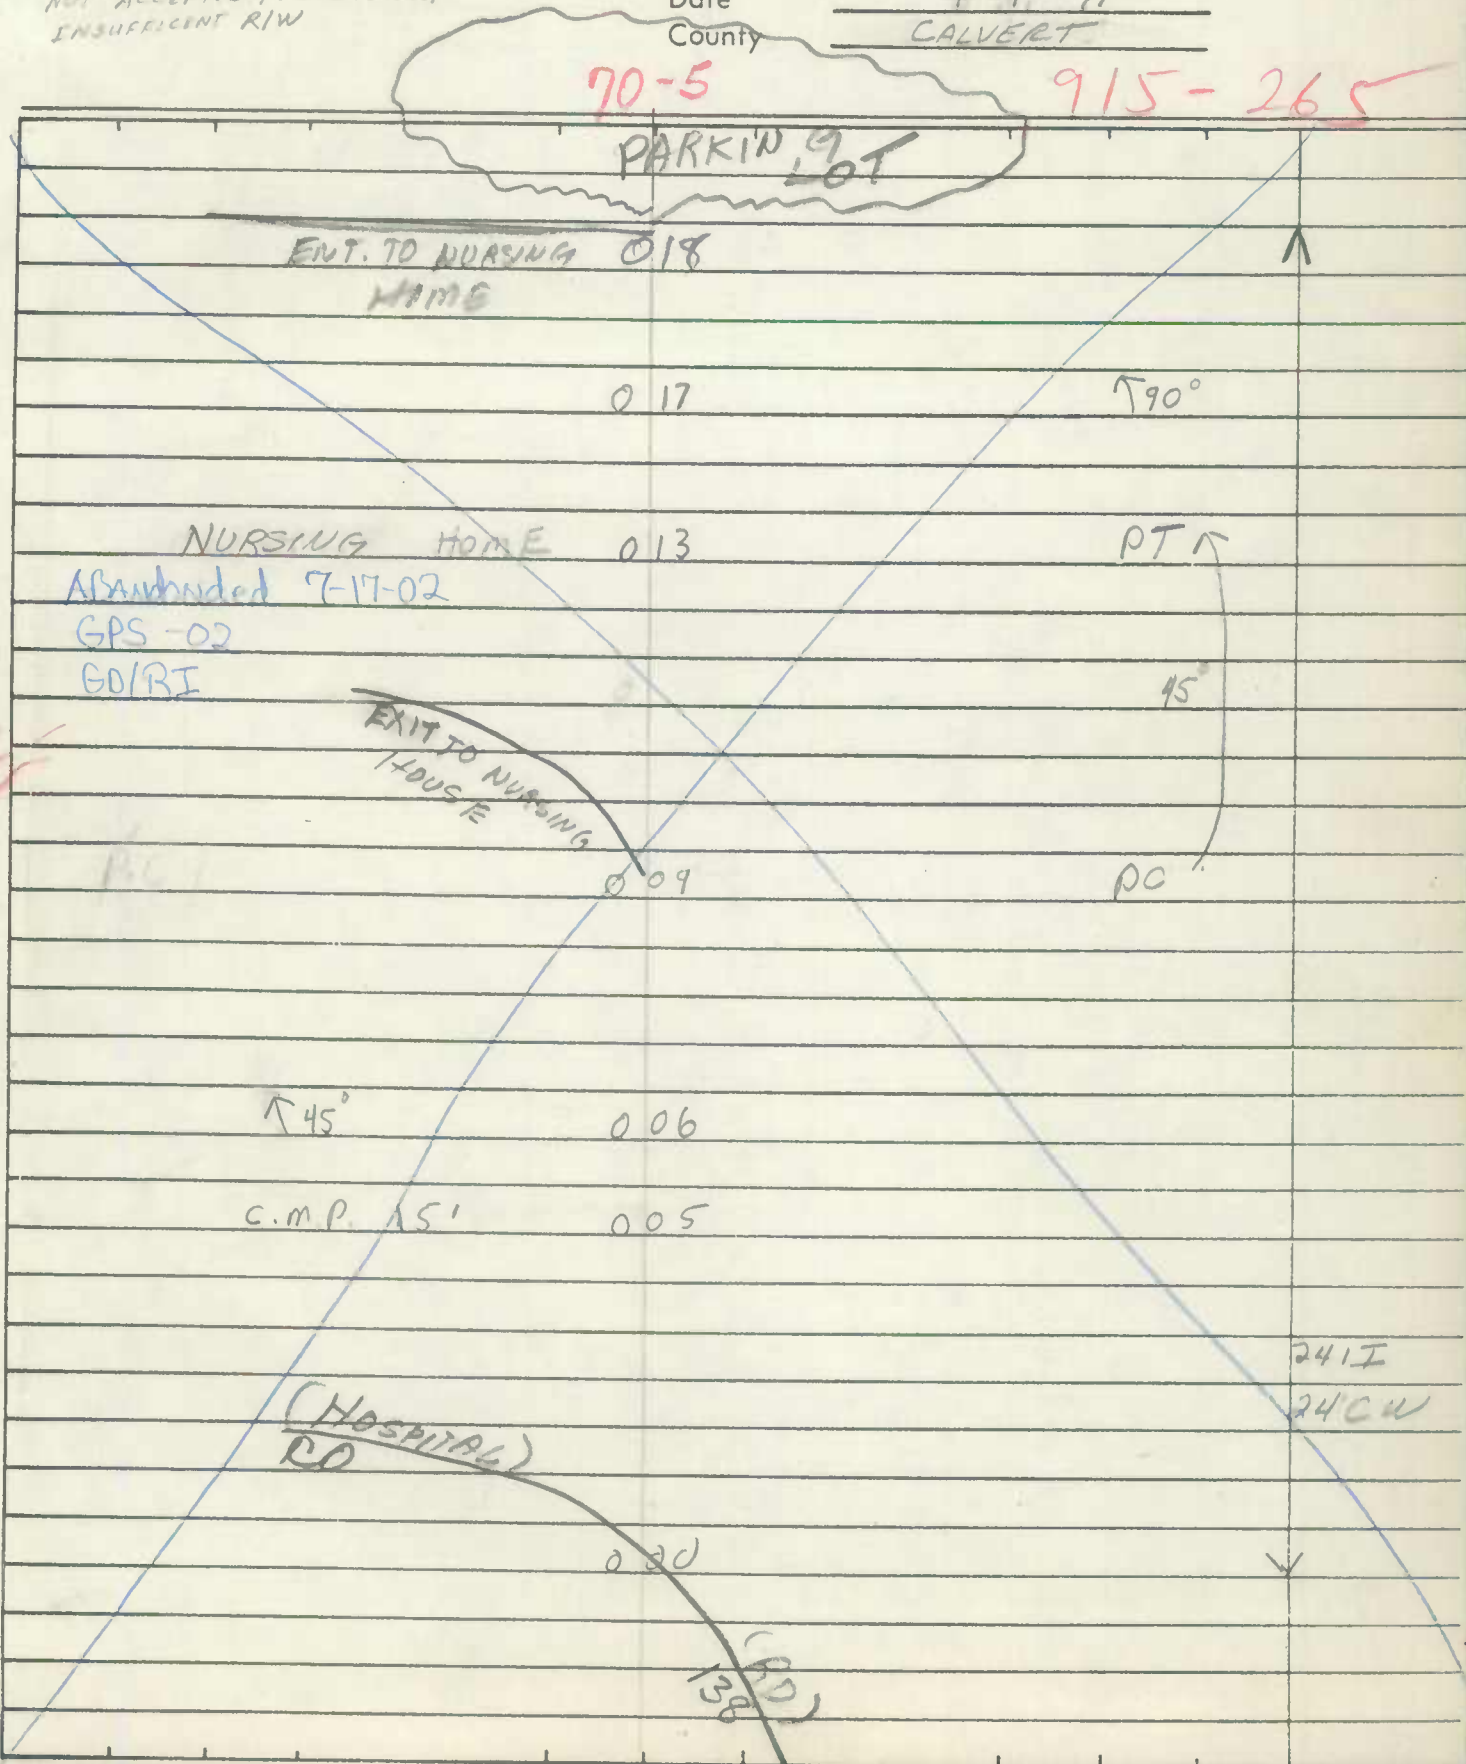 INSUFFICENT R/W
Date
County CALVERT
70-5 915-265
PARKIN'G LOT
ENT. TO NURSING 0 18
HOME
0 17 90°
NURSING HOME 0 13 PT
ABANdoNded 7-17-02
GPS -02
GD/RI
45°
EXIT TO NURSING
HOUSE
0 09 PC
45° 0 06
C.M.P. 15' 0 05
24 I
24 CW
(HOSPITAL)
RD
0 00
138 (RD)